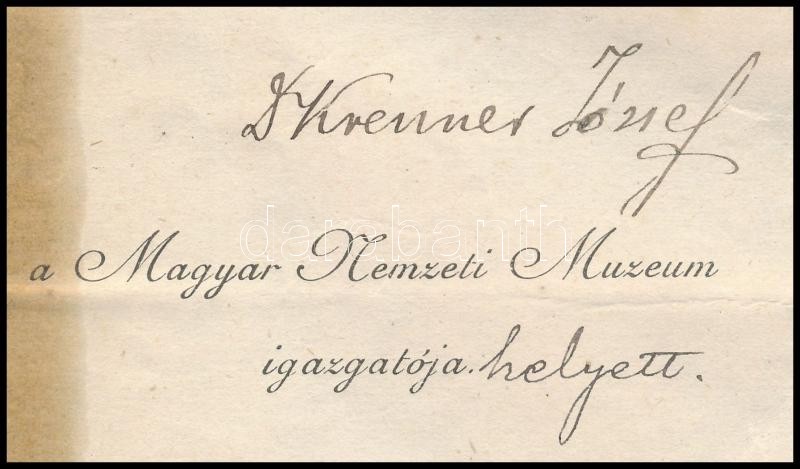 Dr Krenner József
a Magyar Nemzeti Muzeum
igazgatója. helyett.
darabanth